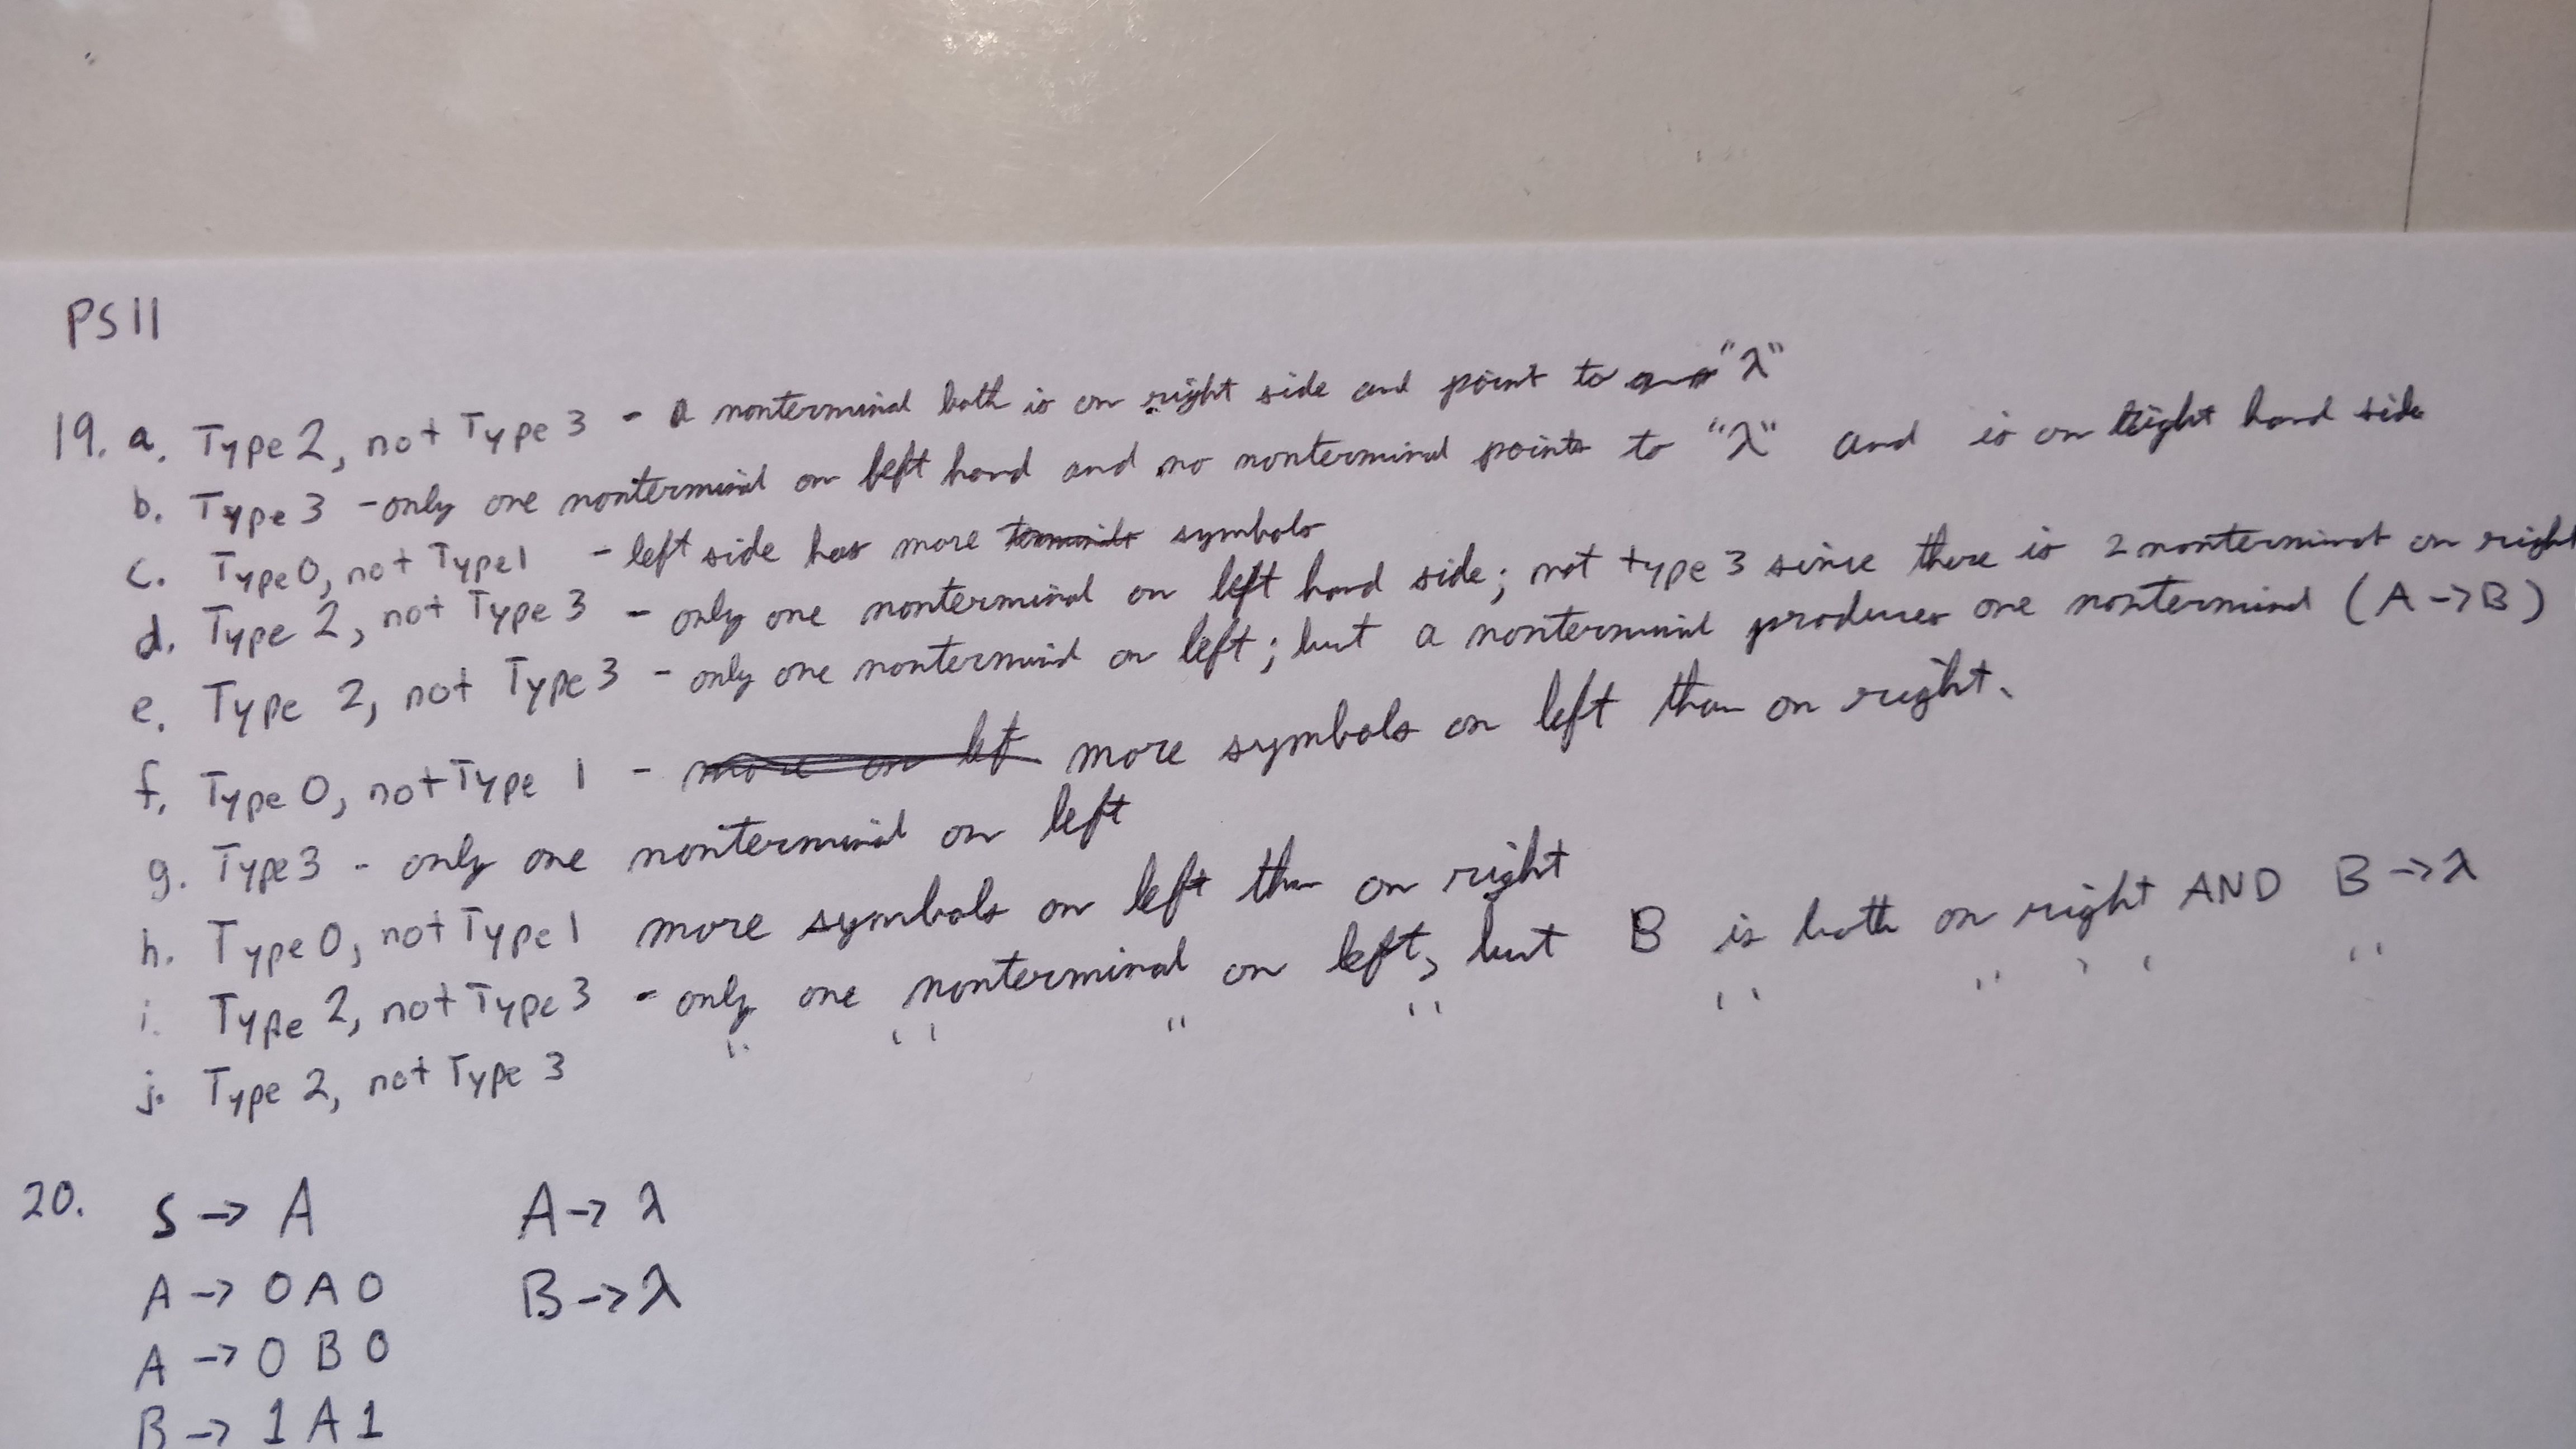 PS11
19. a. Type 2, not Type 3 - a nonterminal both is on right side and point to "λ"
b. Type 3 - only one nonterminal on left hand and no nonterminal points to "λ" and is on right hand side
c. Type 0, not Type 1 - left side has more symbols
d. Type 2, not Type 3 - only one nonterminal on left hand side; not type 3 since there is 2 nonterminal on right
e. Type 2, not Type 3 - only one nonterminal on left; but a nonterminal produces one nonterminal (A -> B)
f. Type 0, not Type 1 - more symbols on left than on right.
g. Type 3 - only one nonterminal on left
h. Type 0, not Type 1 more symbols on left than on right
i. Type 2, not Type 3 - only one nonterminal on left, but B is both on right AND B -> λ
j. Type 2, not Type 3 " " " " " " " "
20. S -> A A -> λ
A -> 0 A 0 B -> λ
A -> 0 B 0
B -> 1 A 1